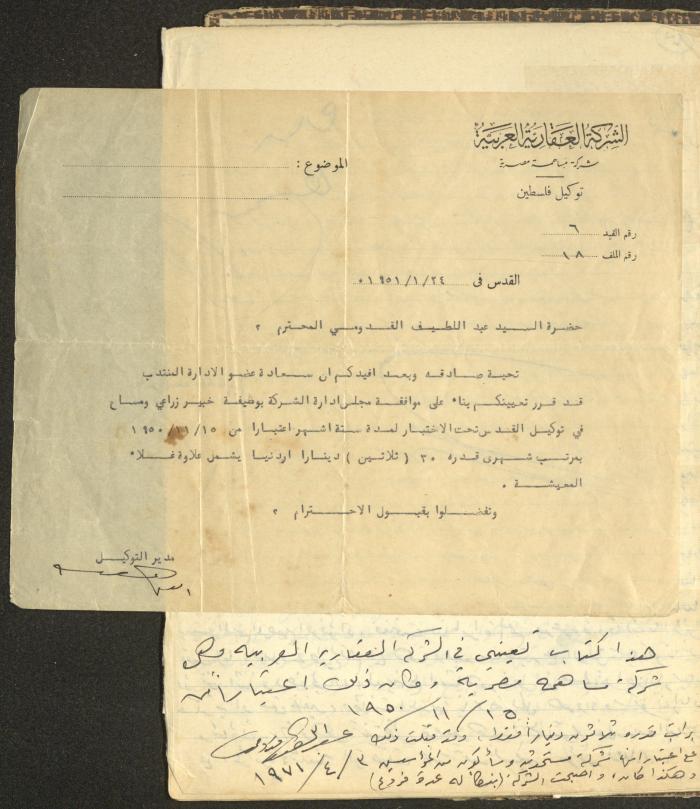 الشركة العقارية العربية
شركة مساهمة مصرية
توكيل فلسطين
الموضوع :
رقم القيد ٦
رقم الملف ١٨
القدس فى ١٩٥١/١/٢٤
حضرة السيد عبد اللطيف القدومي المحترم ،
تحية صادقه وبعد افيدكم ان سعادة عضو الادارة المنتدب
قد قرر تعيينكم بناء على موافقة مجلس ادارة الشركة بوظيفة خبير زراعي ومساح
في توكيل القدس تحت الاختبار لمدة ستة اشهر اعتبارا من ١٩٥٠/١١/١٥
بمرتب شهرى قدره ٣٠ ( ثلاثين ) دينارا اردنيا يشمل علاوة غلاء
المعيشة .
وتفضلوا بقبول الاحترام ،
مدير التوكيل
هذا كتاب تعييني في الشركة العقارية العربية وهي
شركة مساهمة مصرية وكان ذلك اعتباراً من
١٥ / ١١ / ١٩٥٠
براتب قدره ثلاثون ديناراً فقط وقد قبلت ذلك
على اعتبار انها شركة مستحدثة وسأكون من المؤسسين ٣ / ٤ / ١٩٧١
وهكذا كان، واصبحت الشركة لها عدة فروع)